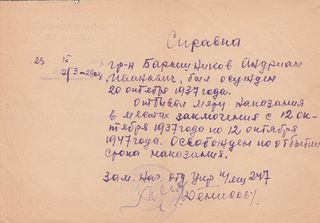 Справка
23 IX
гр-н Барышников Андриан
Иванович, был осужден
20 октября 1937 года.
Отбывал меру наказания
в местах заключения с 12 ок-
тября 1937 года по 12 октября
1947 года. Освобожден по отбытии
срока наказания.
Зам. Нач отд Упр
Денисов